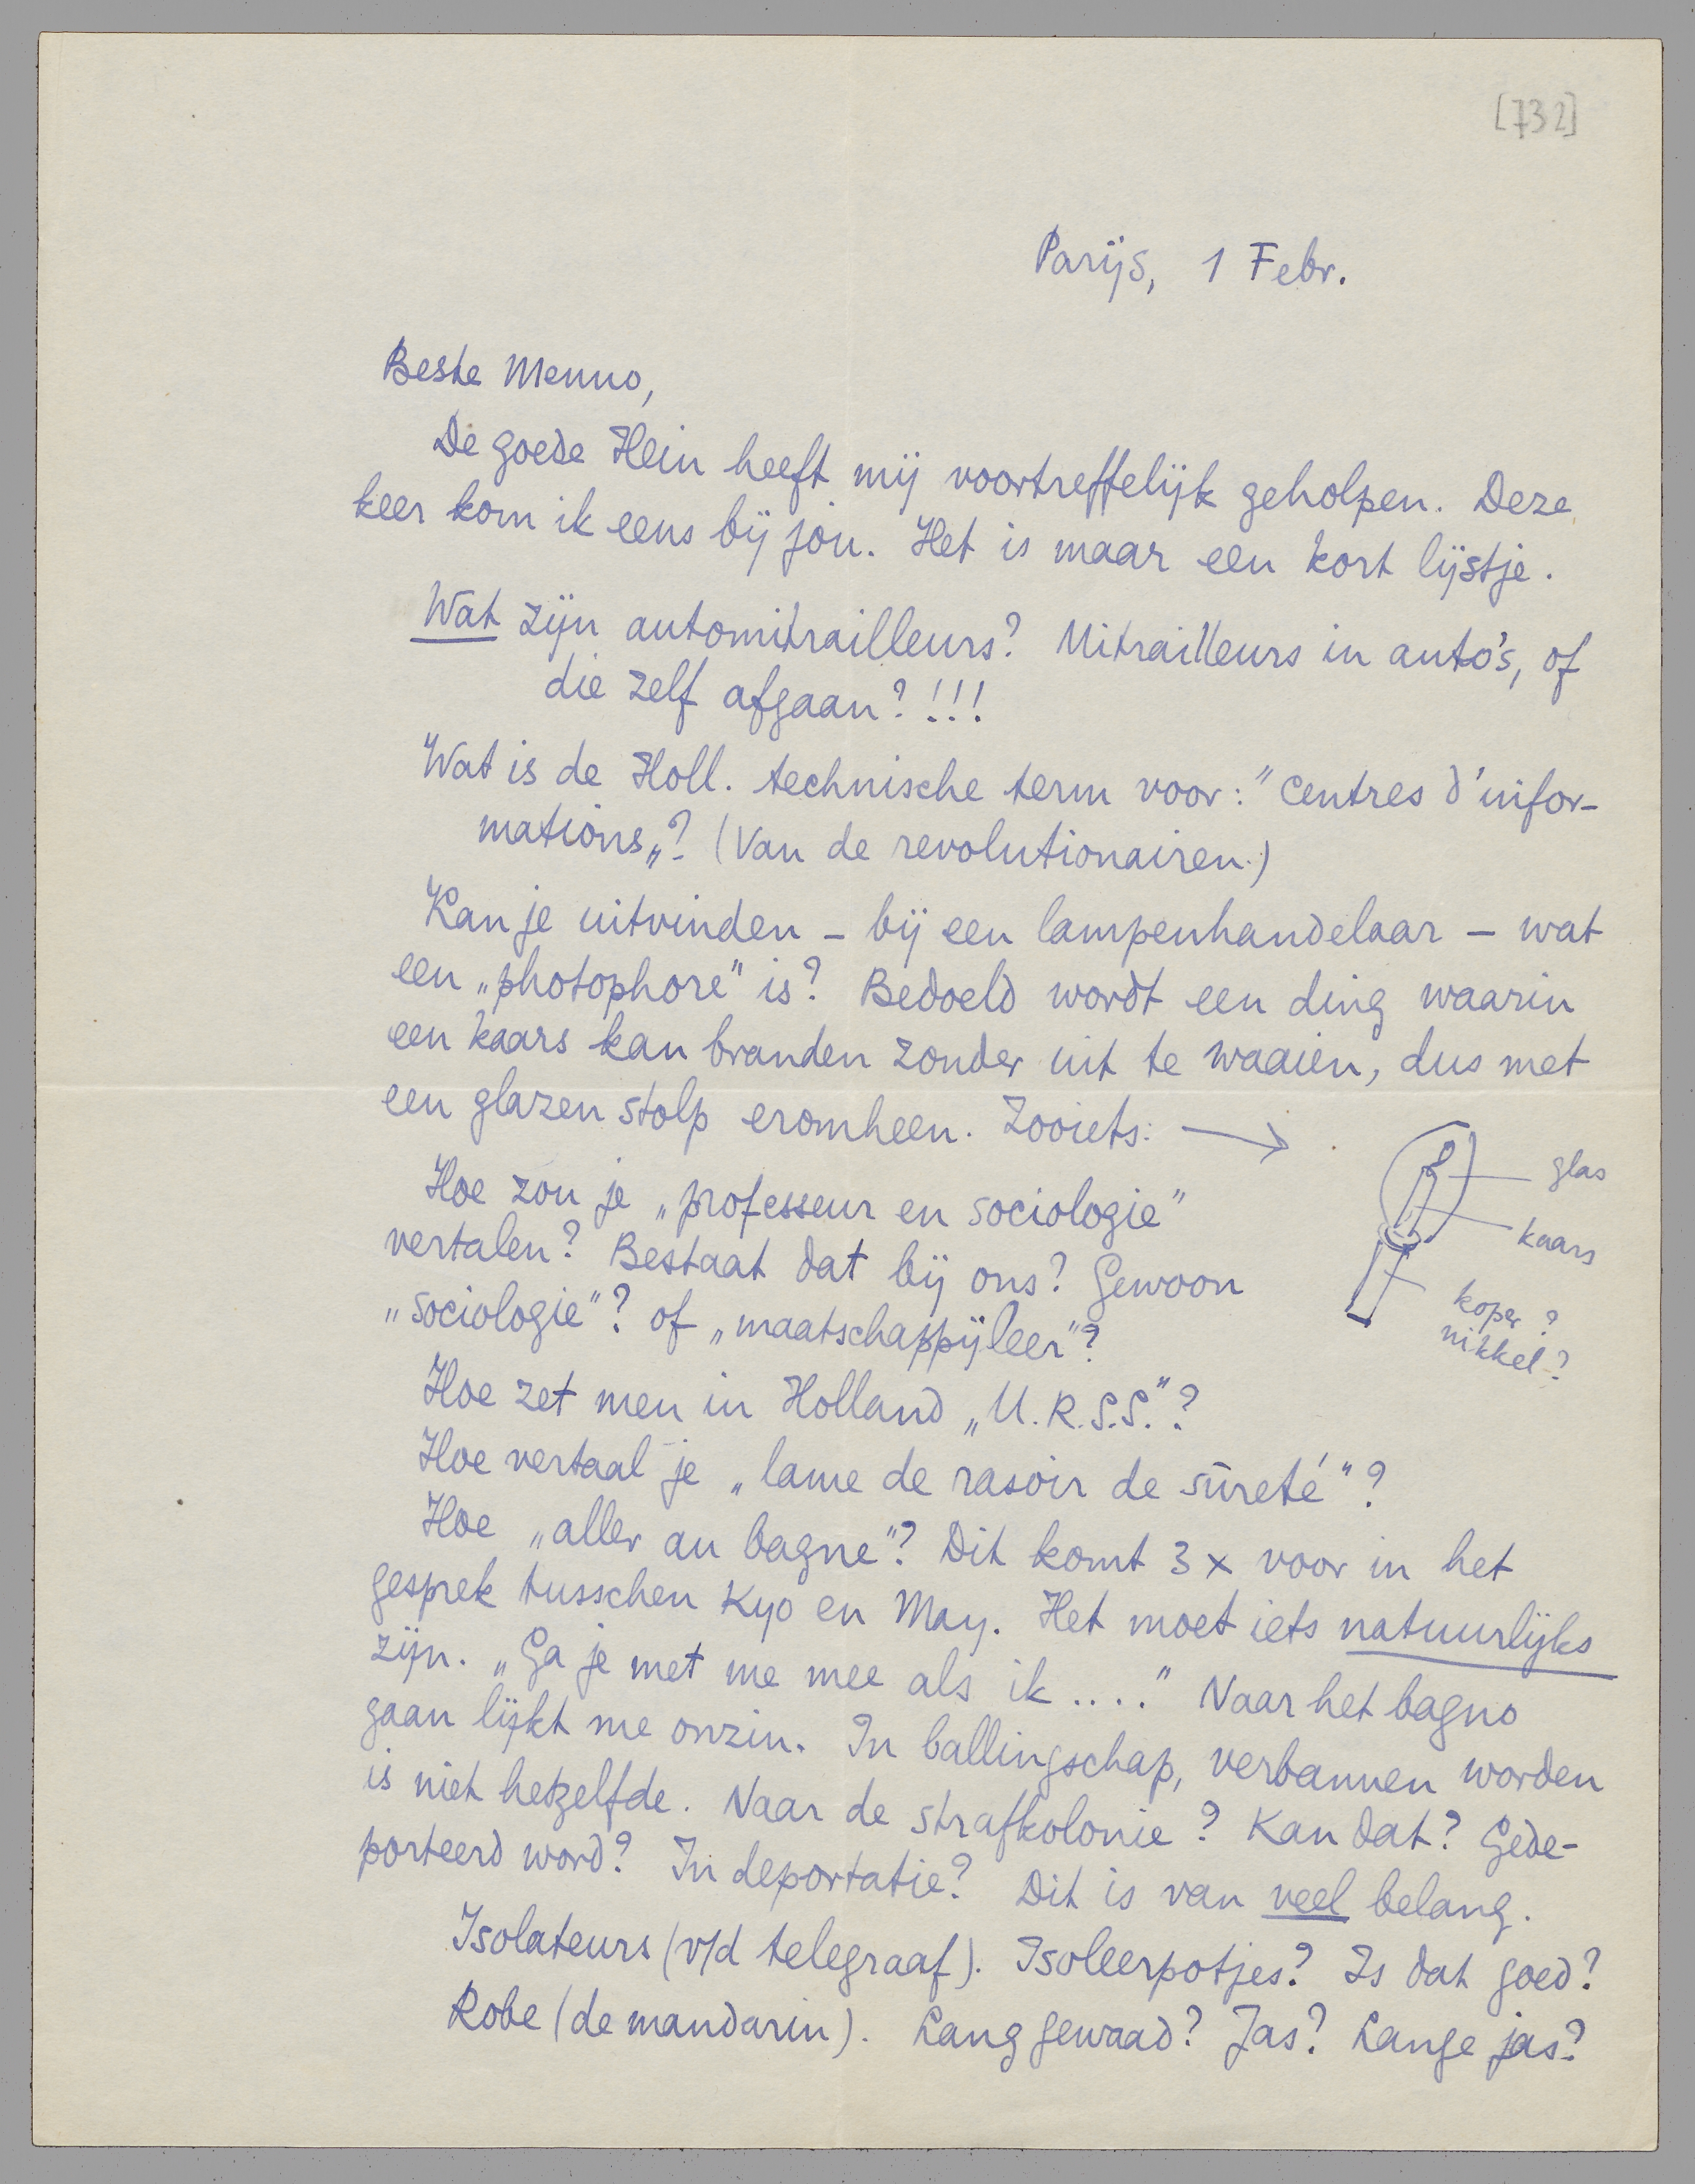 [732]
Parijs, 1 Febr.
Beste Menno,
De goede Hein heeft mij voortreffelijk geholpen. Deze
keer kom ik eens bij jóu. Het is maar een kort lijstje.
Wat zijn automitrailleurs? Mitrailleurs in auto's, of
die zelf afgaan?!!!
Wat is de Holl. technische term voor: "centres d'infor-
mations„? (Van de revolutionairen.)
Kan je uitvinden – bij een lampenhandelaar – wat
een „photophore" is? Bedoeld wordt een ding waarin
een kaars kan branden zonder uit te waaien, dus met
een glazen stolp eromheen. Zooiets: →
glas
kaars
koper?
nikkel?
Hoe zou je „professeur en sociologie"
vertalen? Bestaat dat bij ons? Gewoon
„sociologie"? of „maatschappijleer"?
Hoe zet men in Holland „U.R.S.S."?
Hoe vertaal je „lame de rasoir de sûreté"?
Hoe „aller au bagne"? Dit komt 3 x voor in het
gesprek tusschen Kyo en May. Het moet iets natuurlijks
zijn. „Ga je met me mee als ik ...." Naar het bagno
gaan lijkt me onzin. In ballingschap, verbannen worden
is niet hetzelfde. Naar de strafkolonie? Kan dat? Gede-
porteerd word? In deportatie? Dit is van veel belang.
Isolateurs (v/d telegraaf). Isoleerpotjes? Is dat goed?
Robe (de mandarin). Lang gewaad? Jas? Lange jas?